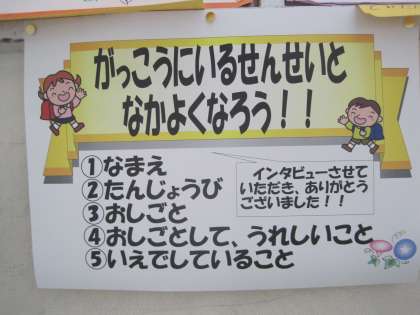 がっこうにいるせんせいと
なかよくなろう！！
①なまえ
②たんじょうび
③おしごと
④おしごとして、うれしいこと
⑤いえでしていること
インタビューさせて
いただき、ありがとう
ございました！！